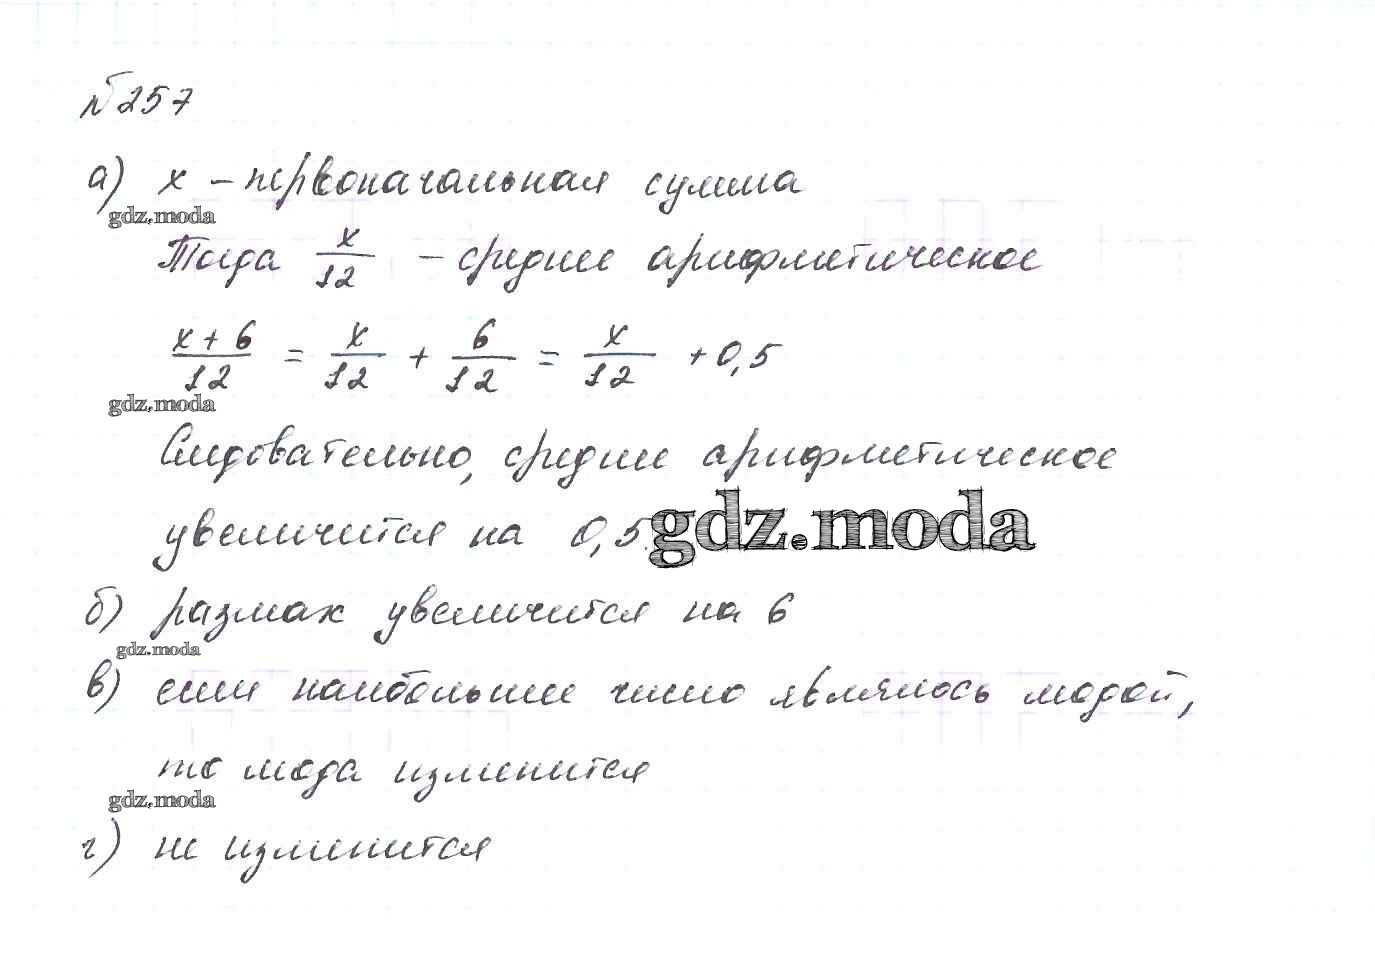 №257
а) x – первоначальная сумма
gdz.moda
Тогда x/12 – среднее арифметическое
(x + 6)/12 = x/12 + 6/12 = x/12 + 0,5
gdz.moda
Следовательно, среднее арифметическое
увеличится на 0,5. gdz.moda
б) размах увеличится на 6
gdz.moda
в) если наибольшее число являлось модой,
то мода изменится
gdz.moda
г) не изменится